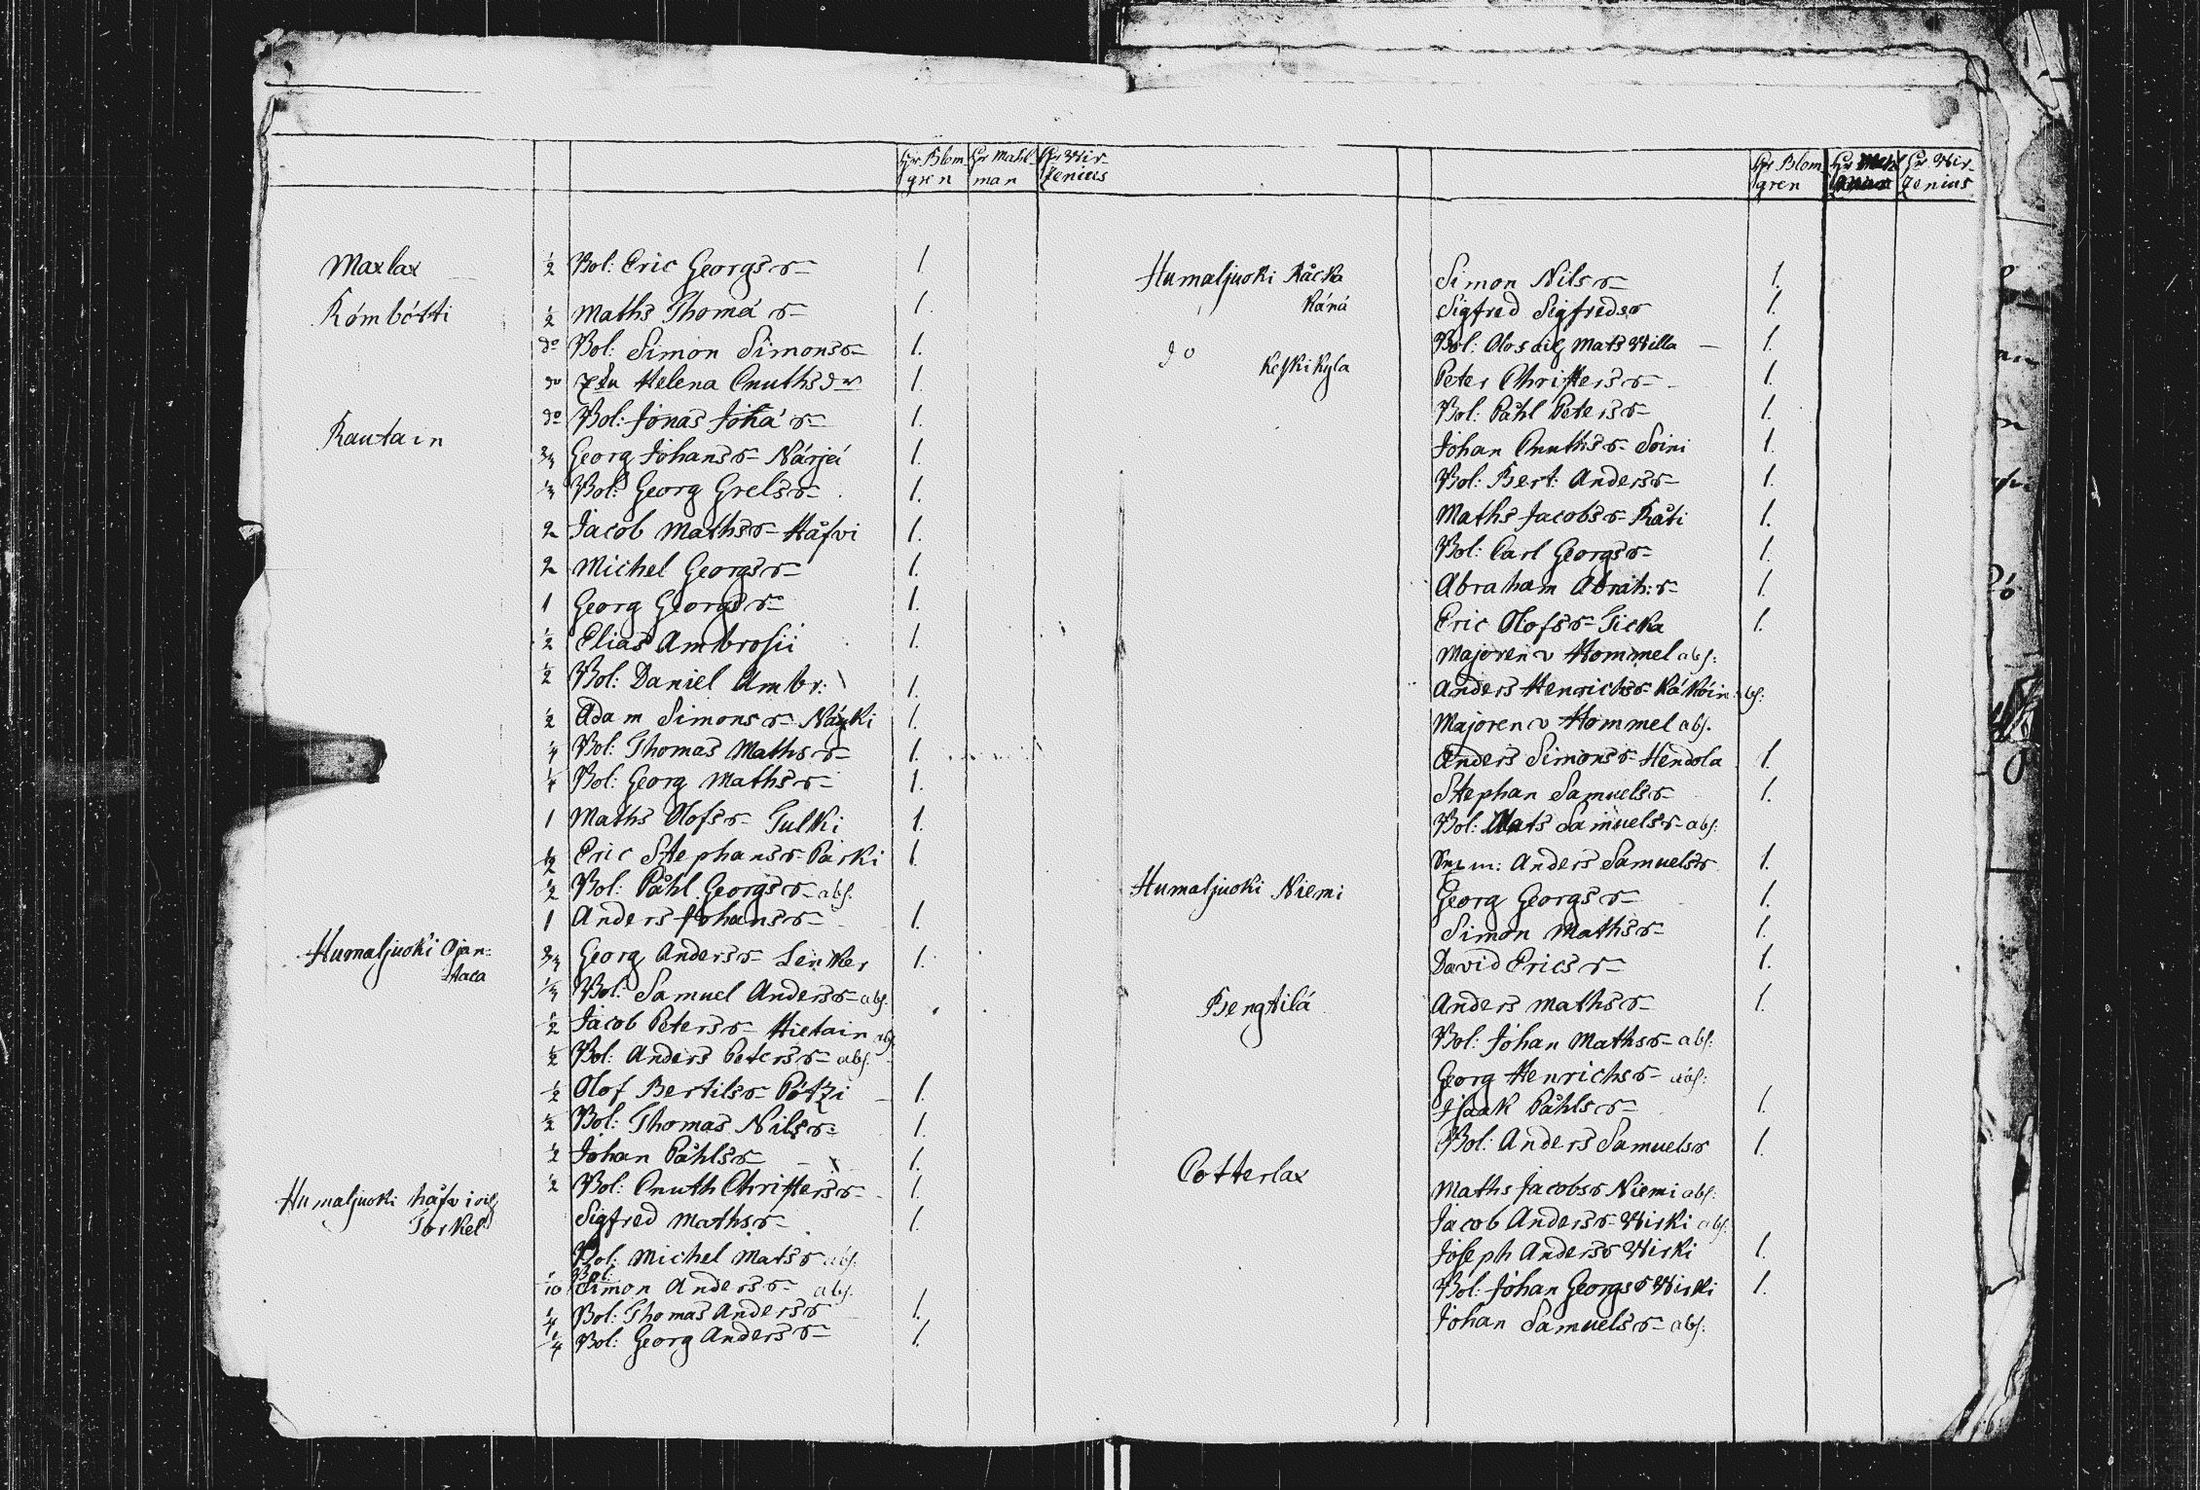 Hr Blom Hr Mahl Hr Wir-
gren man zenius
Maxlax ½ Bol: Eric Georgs s- 1.
Kömbötti ½ Maths Thomä s- 1.
do Bol: Simon Simons s- 1.
do Helena Cnuths dr 1.
Rautain do Bol: Jonas Joha s- 1.
Georg Johans s- Närjei 1.
⅓ Bol: Georg Grels s- 1.
2 Jacob Maths s- Håfvi 1.
2 Michel Georgs s- 1.
1 Georg Georgs s- 1.
½ Elias Ambrosii 1.
½ Bol: Daniel Ambr: 1.
½ Adam Simons s- 1.
¼ Bol: Thomas Maths s- 1.
¼ Bol: Georg Maths s- 1.
1 Maths Olofs s- Tulki 1.
½ Eric Stephans s- Parki 1.
½ Bol: Påhl Georgs s- abs.
1 Anders Johans s- 1.
Humaljuoki Ojan= Georg Anders s- Lenker 1.
staca ⅓ Bol: Samuel Anders s- abs.
½ Jacob Peters s- Hietain abs.
½ Bol: Anders Peters s- abs.
½ Olof Bertils s- Pötzi 1.
½ Bol: Thomas Nils s- 1.
½ Johan Påhls s- 1.
Humaljuoki håfvi ½ Bol: Cnuth Christers s- 1.
Torkel Sigfred Maths s- 1.
Bol: Michel Mats s abs.
1/10 Bol: Simon Anders s- abs.
¼ Bol: Thomas Anders s 1.
¼ Bol: Georg Anders s- 1.
Hr Blom Hr Wir-
gren zenius
Humaljuoki Kåcka Simon Nils s- 1.
känä Sigfred Sigfreds s 1.
do Bol: Mats Willa 1.
Keskikyla Peter Christers s- 1.
Bol: Påhl Peters s- 1.
Johan Cnuths s- Soini 1.
Bol: Bert: Anders s- 1.
Maths Jacobs s- Kåti 1.
Bol: Carl Georgs s- 1.
Abraham Abrah: s- 1.
Eric Olofs s- Ticka 1.
Majoren v Hommel abs:
Anders Henrichs s- Käköin abs:
Majoren v Hommel abs.
Anders Simons s- Hendola 1.
Stephan Samuels s- 1.
Bol: Mats Samuels s- abs:
Anders Samuels s 1.
Humaljuoki Niemi Georg Georgs s- 1.
Simon Maths s- 1.
David Erics s- 1.
Bengtilä Anders Maths s- 1.
Bol: Johan Maths s- abs:
Georg Henrichs s- abs:
Isaak Påhls s- 1.
Bol: Anders Samuels s 1.
Cotterlax Maths Jacobs s Niemi abs:
Jacob Anders s- Wirki abs:
Joseph Anders s Wirki 1.
Bol: Johan Georgs s Wirki 1.
Johan Samuels s- abs: